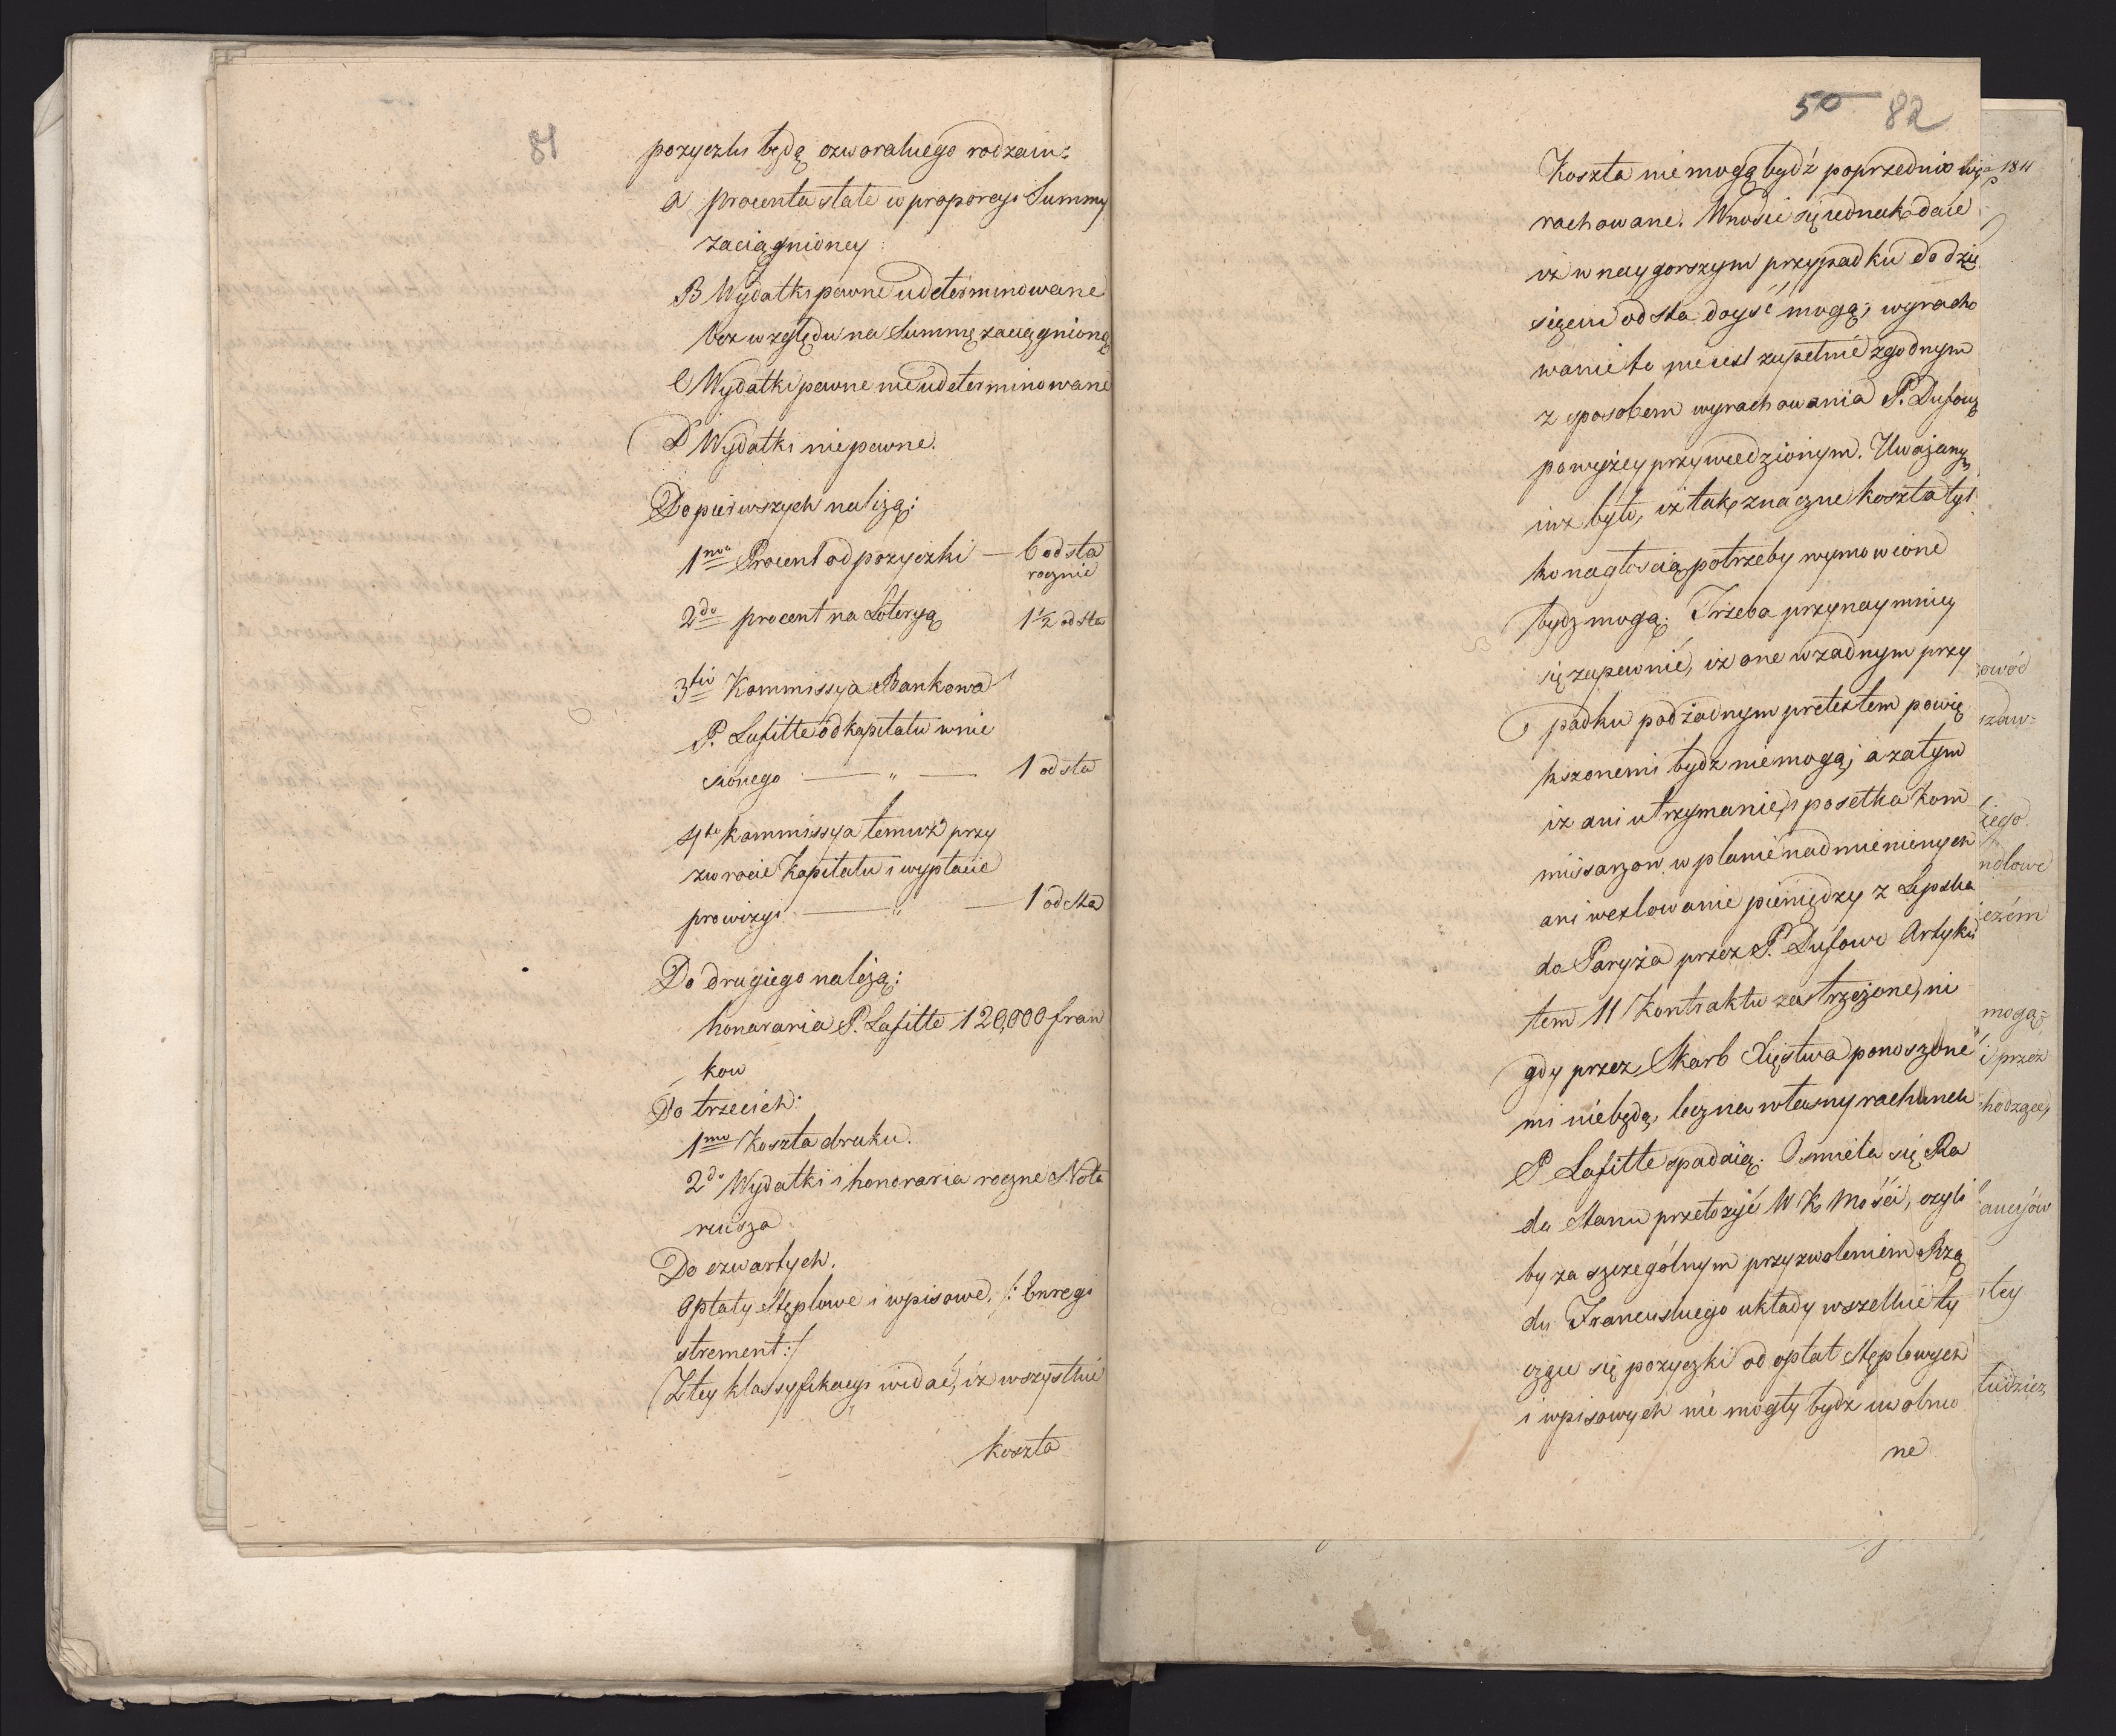 81
pozyczki będą czworakiego rodzaiu:
a procenta stałe w proporcyi Summy
zaciągnioney:
B Wydatki pewne udeterminowane
bez względu na Summę zaciągnioną
C Wydatki pewne nieudeterminowane
D Wydatki niepewne.
Do pierwszych należą:
1mo Procent od pozyczki — 6 od sta
rocznie
2do procent na Loteryą 1 1/2 od sta
3tio Kommissya Bankowa
P. Lafitte od kapitału wnie
sionego — " — 1 od sta
4to kommissya temuż przy
zwrocie kapitału i wypłacie
prowizyi — " — 1 od sta
Do drugiego należą:
honoraria P. Lafitte 120,000 fran
kow
Do trzecich:
1mo Koszta druku.
2do Wydatki i honoraria roczne Nota
riusza
Do czwartych.
Opłaty Stęplowe i wpisowe. /: Enregi
strement :/
Z tey klassyfikacyi widać, iż wszystkie
koszta
50 82
Koszta nie mogą bydź poprzednio wy
rachowane. Wnosić się iednak daie
iż w naygorszym przypadku do dzie
sięciu od sta doyść mogą; wyracho
wanie to nie iest zupełnie zgodnym
z sposobem wyrachowania P. Dufour
powyżey przywiedzionym. Uważanym
iuż było, iż tak znaczne koszta tyl
ko nagłością potrzeby wymowione
bydz mogą. Trzeba przynaymniey
się zapewnić, iż one w zadnym przy
padku pod żadnym pretextem powię
kszonemi bydz nie mogą; a zatym
iż ani utrzymanie i posełka Kom
missarzow w planie nadmienionych
ani wexlowanie pieniędzy z Lipska
do Paryża przez P. Dufour Artyku
łem 11 Kontraktu zastrzeżone, ni
gdy przez Skarb Xięstwa ponoszone
mi niebędą, lecz na własny rachunek
P Lafitte spadaią. Osmiela się Ra
da Stanu przełożyć W K Mości, czyli
by za szczególnym przyzwoleniem Rzą
du Francuskiego układy wszelkie ty
czące się pozyczki od opłat Stęplowych
i wpisowych nie mogły bydź uwolnio
ne
1811
owód
zaw=
iego
ndlowe
iezém
mogą=
i przez
hodzące,
tey
tudzież